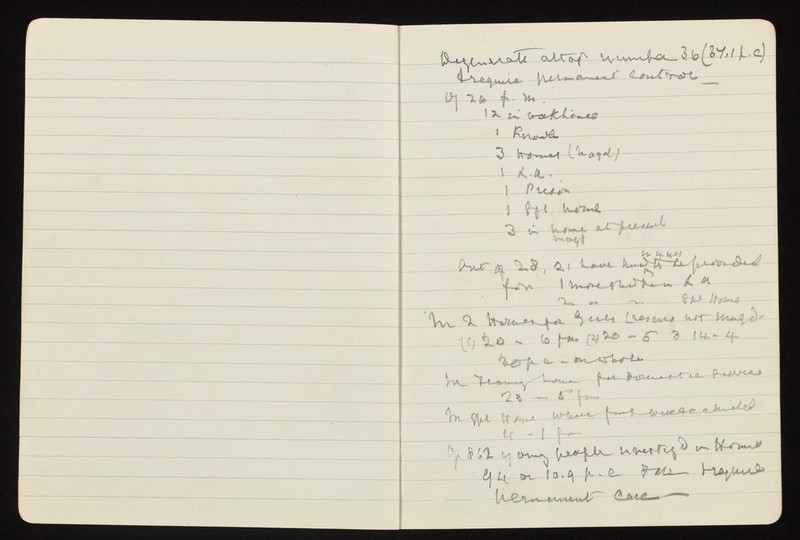 Degenerate altogr number 36 (37.1 p.c)
& require permanent control —
Of 26 f. m.
12 in workhouse
1 Knowle
3 Homes (Magd)
1 L.A.
1 Prison
1 Spl Home
3 in home at present
Magd
Out of 28, 21 have had to be provided
for 1 more shd be in L.A
Spl Home
In 2 Homes for Girls (rescue not Magd
(1) 20 - 6 fm (2) 20 - 5 3 14 - 4
30 p c - on whole
In Training home for Domestic Service
23 — 5 fm
In Spl Home where fm were excluded
- 1 fm
Of 862 young people investig'd in Homes
94 or 10.9 p.c F.M. & require
permanent care —